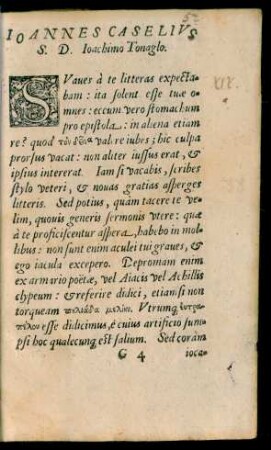 IOANNES CASELIVS
S. D. Ioachimo Tonaglo.
SVaues à te litteras expecta-
bam: ita solent esse tuæ o-
mnes: eccum vero stomachum
pro epistola: in aliena etiam
re? quod valere iubes; hic culpa
prorsus vacat: non aliter iussus erat, &
ipsius intererat. Iam si vacabis, scribes
stylo veteri, & nouas gratias asperges
litteris. Sed potius, quàm tacere te ve-
lim, quouis generis sermonis vtere: quæ
à te proficiscentur aspera, habebo in mol-
libus: non sunt enim aculei tui graues, &
ego iacula excepero. Depromam enim
ex armario poëtæ, vel Aiacis vel Achillis
clypeum: & referire didici, etiamsi non
torqueam πηλιάδα μελίην. Vtrumq;
esse didicimus, è cuius artificio sum-
psi hoc qualecunq; est salium. Sed coràm
G 4 ioca-